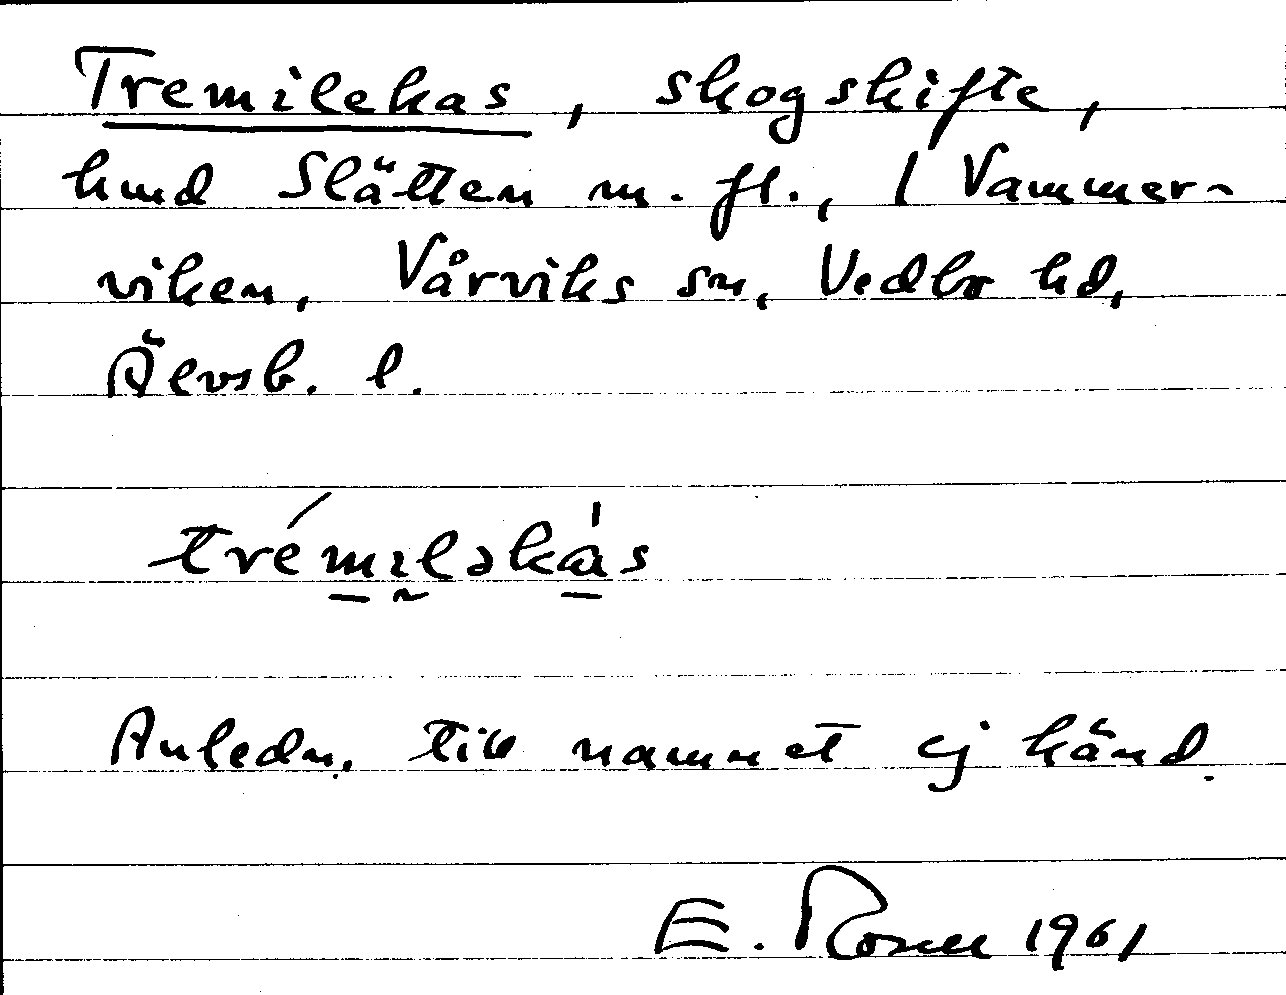 Tremilekas, skogskifte,
hmd Slätten m. fl., 1 Vammer-
viken, Vårviks sn, Vedbo hd,
Älvsb. l.
trémıləkàs
Anledn. till namnet ej känd.
E. Rosell 1961